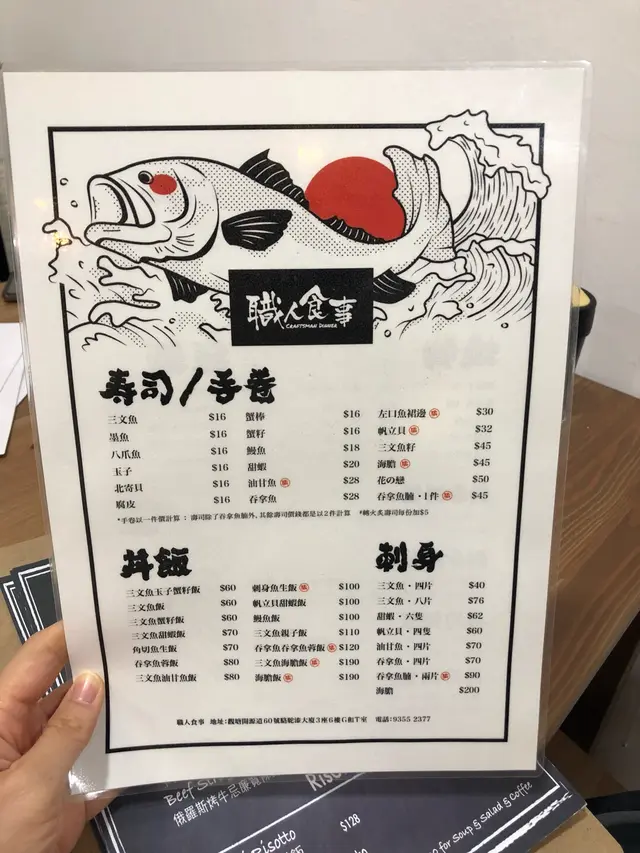 職人食事
CRAFTSMAN DINNER
壽司/手卷
三文魚 $16
墨魚 $16
八爪魚 $16
玉子 $16
北寄貝 $16
腐皮 $16
蟹棒 $16
蟹籽 $16
鰻魚 $18
甜蝦 $20
油甘魚 $28
吞拿魚 $28
左口魚裙邊 $30
帆立貝 $32
三文魚籽 $45
海膽 $45
花の戀 $50
吞拿魚腩·1件 $45
*手卷以一件價計算 : 壽司除了吞拿魚腩外,其餘壽司價錢都是以2件計算 *轉火炙壽司每份加$5
丼飯
三文魚玉子蟹籽飯 $60
三文魚飯 $60
三文魚蟹籽飯 $60
三文魚甜蝦飯 $70
角切魚生飯 $70
吞拿魚蓉飯 $80
三文魚油甘魚飯 $80
刺身魚生飯 $100
帆立貝甜蝦飯 $100
鰻魚飯 $100
三文魚親子飯 $110
吞拿魚吞拿魚蓉飯 $120
三文魚海膽飯 $190
海膽飯 $190
刺身
三文魚·四片 $40
三文魚·八片 $76
甜蝦·六隻 $62
帆立貝·四隻 $60
油甘魚·四片 $70
吞拿魚·四片 $70
吞拿魚腩·兩片 $90
海膽 $200
職人食事 地址:觀塘開源道60號駱駝漆大廈3座6樓G和T室 電話:9355 2377
Beef
俄羅斯烤牛
Risotto
$128
for Soup & Salad & Coffee